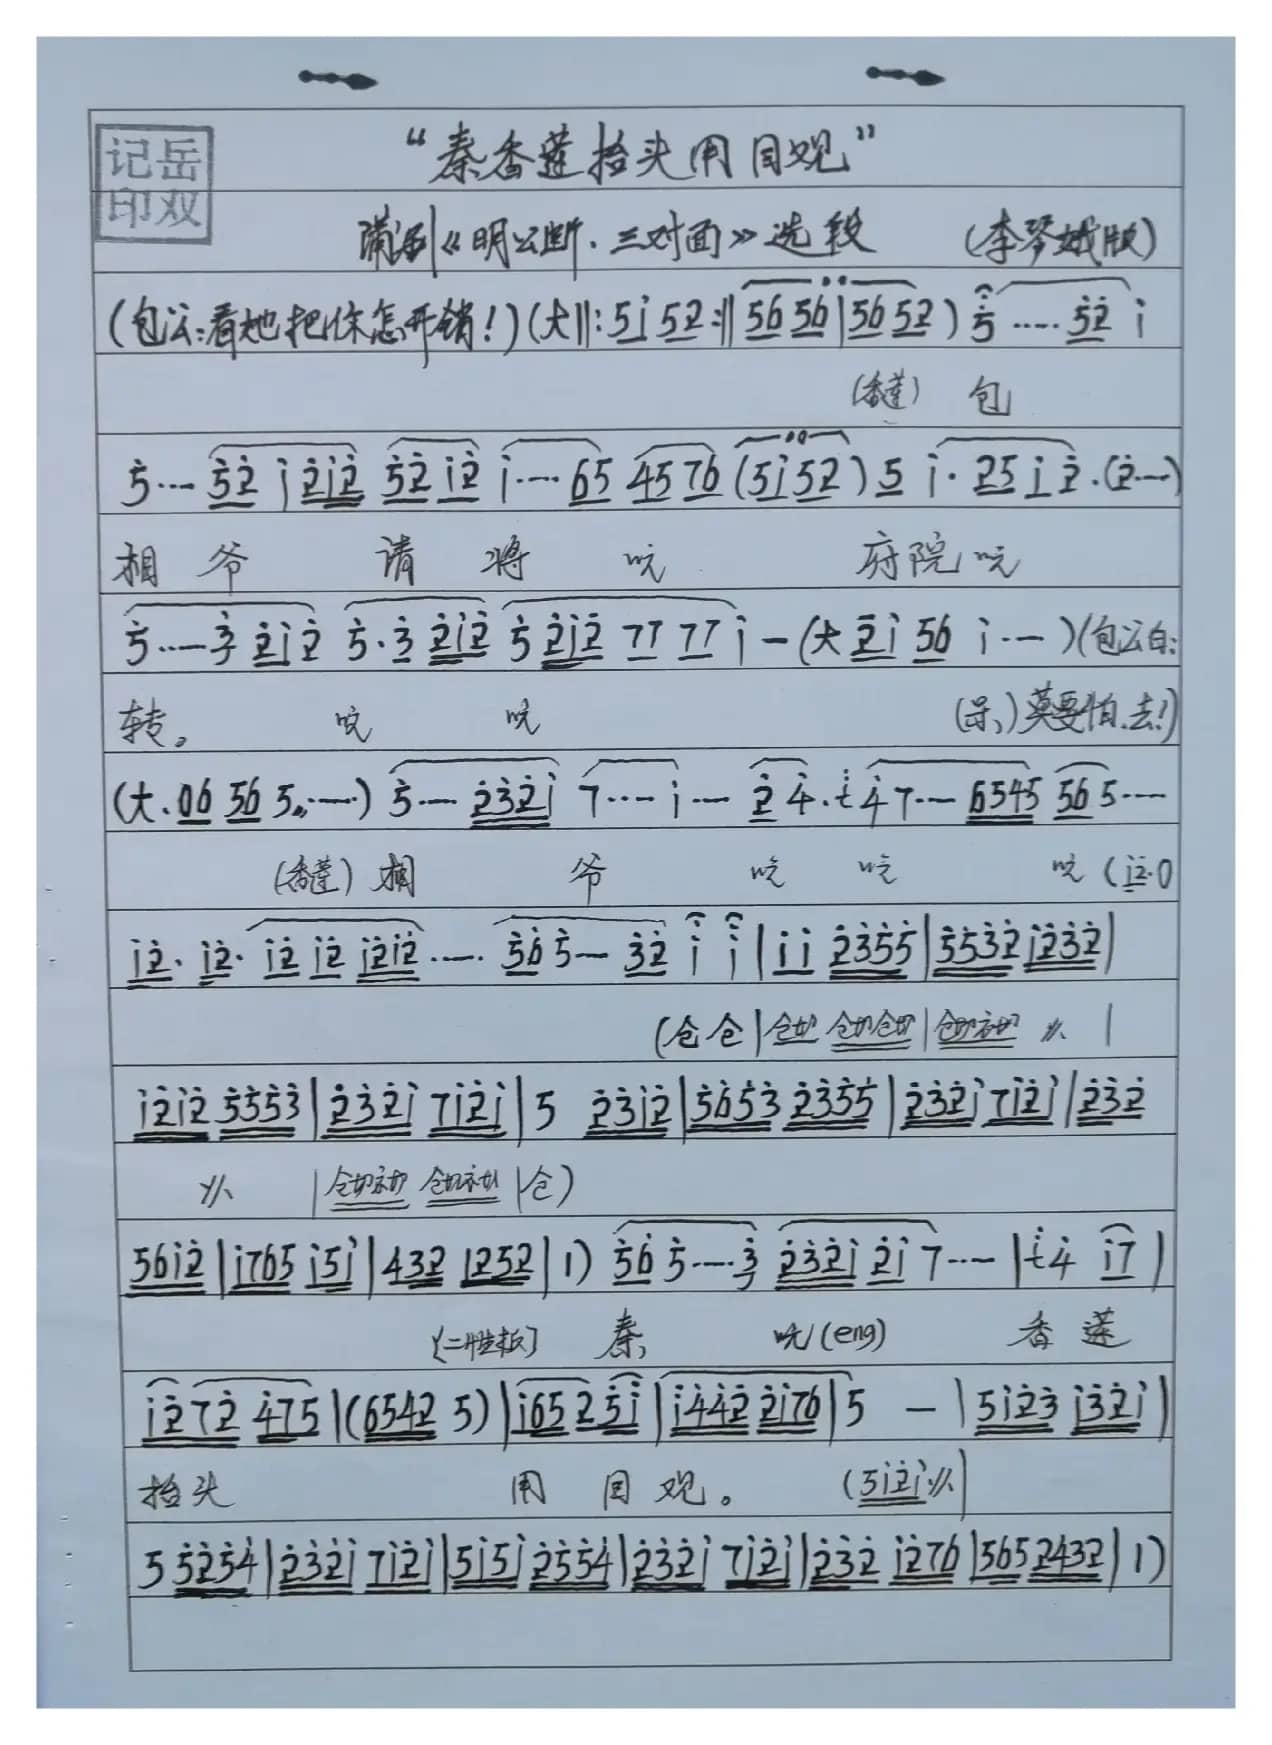 岳双印记
“秦香莲抬头用目观”
蒲剧《明公断·三对面》选段 (李琴娥版)
(包公:看她把你怎开销!)(大‖:5i 52:‖56 56|56 52) 5····· 52 i
(香莲) 包
5··· 52 i 2i2 52 i2 i···· 65 45 76 (5i52) 5 i· 25 i 2·(2···)
相 爷 请 将 吭 府院吭
5····3 2i2 5·3 2i2 5 2i2 77 77 i — (大 2i 56 i ···)(包公白:
转。 吭 吭 (呆、)莫要怕.去!)
(大. 06 56 5····) 5···· 232i 7···· i··· 2 4· i七 4 7··· 6545 56 5····
(香莲) 相 爷 吭 吭 吭 (i2·0
i2· i2· i2 i2 i2i2 ····· 56 5··· 32 i i|ii 2355|5532 i232|
(仓仓|仓 仓仓|仓 〃 |
i2i2 5553|232i 7i2i|5 23i2|5653 2355|232i 7i2i|232
〃 | | 仓)
56i2|i765 i5i|432 1252|1) 56 5····3 232i 2i 7····|七4 i7|
(二性板) 秦, 吭(eng) 香 莲
i272 475|(6542 5)|i65 2 5i|i442 2i76|5 — |5i23 i32i|
抬头 用 目 观。 (5i2i〃|
5 5254|232i 7i2i|5i5i 2554|232i 7i2i|232 i276|565 2432|1)